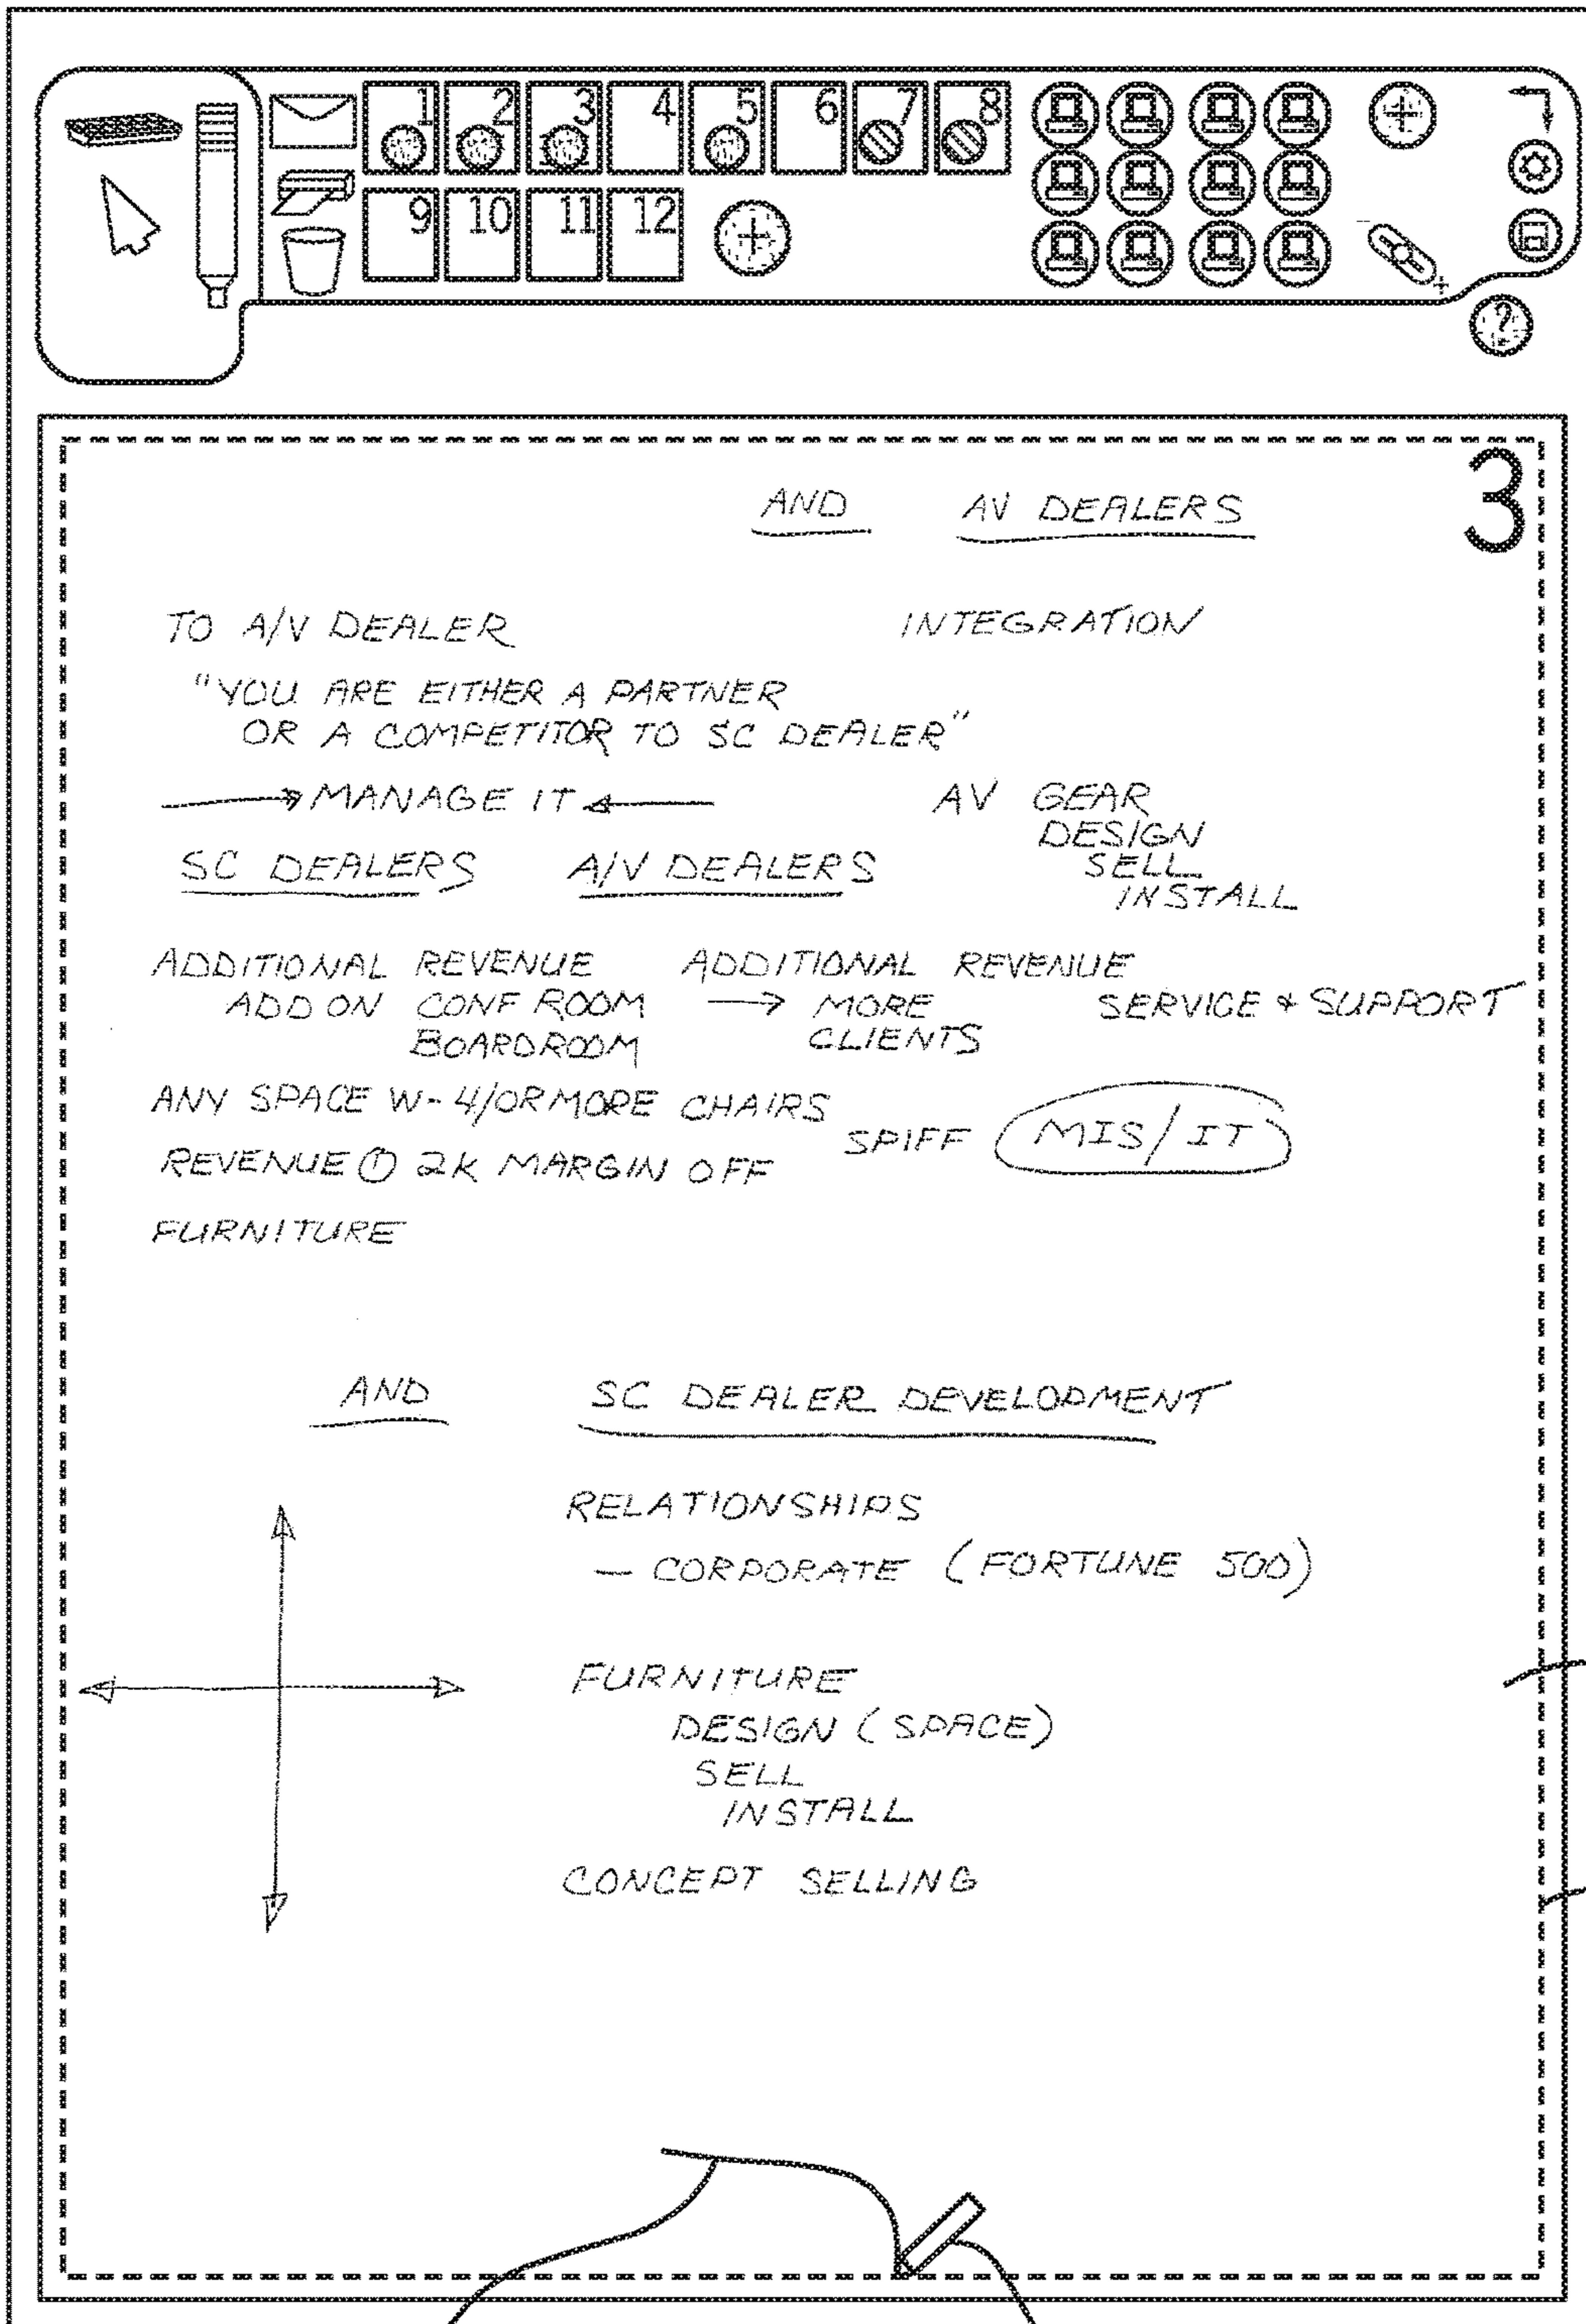 1 2 3 4 5 6 7 8
9 10 11 12
?
3
AND AV DEALERS
TO A/V DEALER INTEGRATION
"YOU ARE EITHER A PARTNER
OR A COMPETITOR TO SC DEALER"
MANAGE IT AV GEAR
DESIGN
SC DEALERS A/V DEALERS SELL
INSTALL
ADDITIONAL REVENUE ADDITIONAL REVENUE
ADD ON CONF ROOM → MORE SERVICE & SUPPORT
BOARDROOM CLIENTS
ANY SPACE W-4/OR MORE CHAIRS
SPIFF MIS/IT
REVENUE 2K MARGIN OFF
FURNITURE
AND SC DEALER DEVELOPMENT
RELATIONSHIPS
— CORPORATE (FORTUNE 500)
FURNITURE
DESIGN (SPACE)
SELL
INSTALL
CONCEPT SELLING